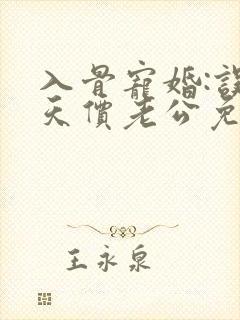 入骨寵婚:誤
天價老公免
王永泉